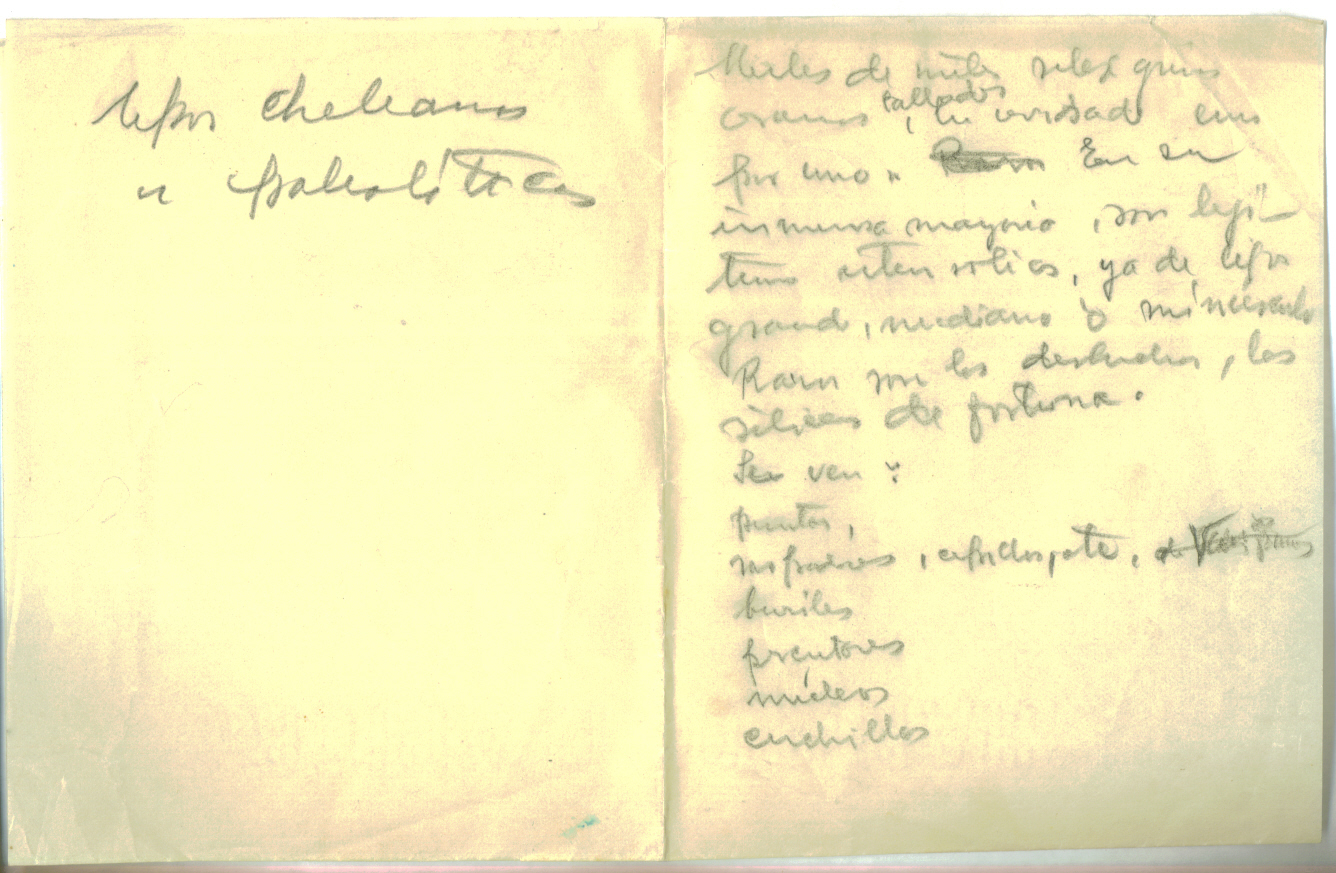 tipos cheleanos
u paleolíticos
Miles de miles silex grises
tallados
oramos, he revisado uno
por uno. Raros En su
inmensa mayoria, son legí-
timos utensilios, ya de tipo
grande, mediano ó minúsculo
Raros son los deshechos, las
silices de fortuna.
Se ven:
puntas,
raspadores, cepillos, etc,
buriles
percutores
núcleos
cuchillos